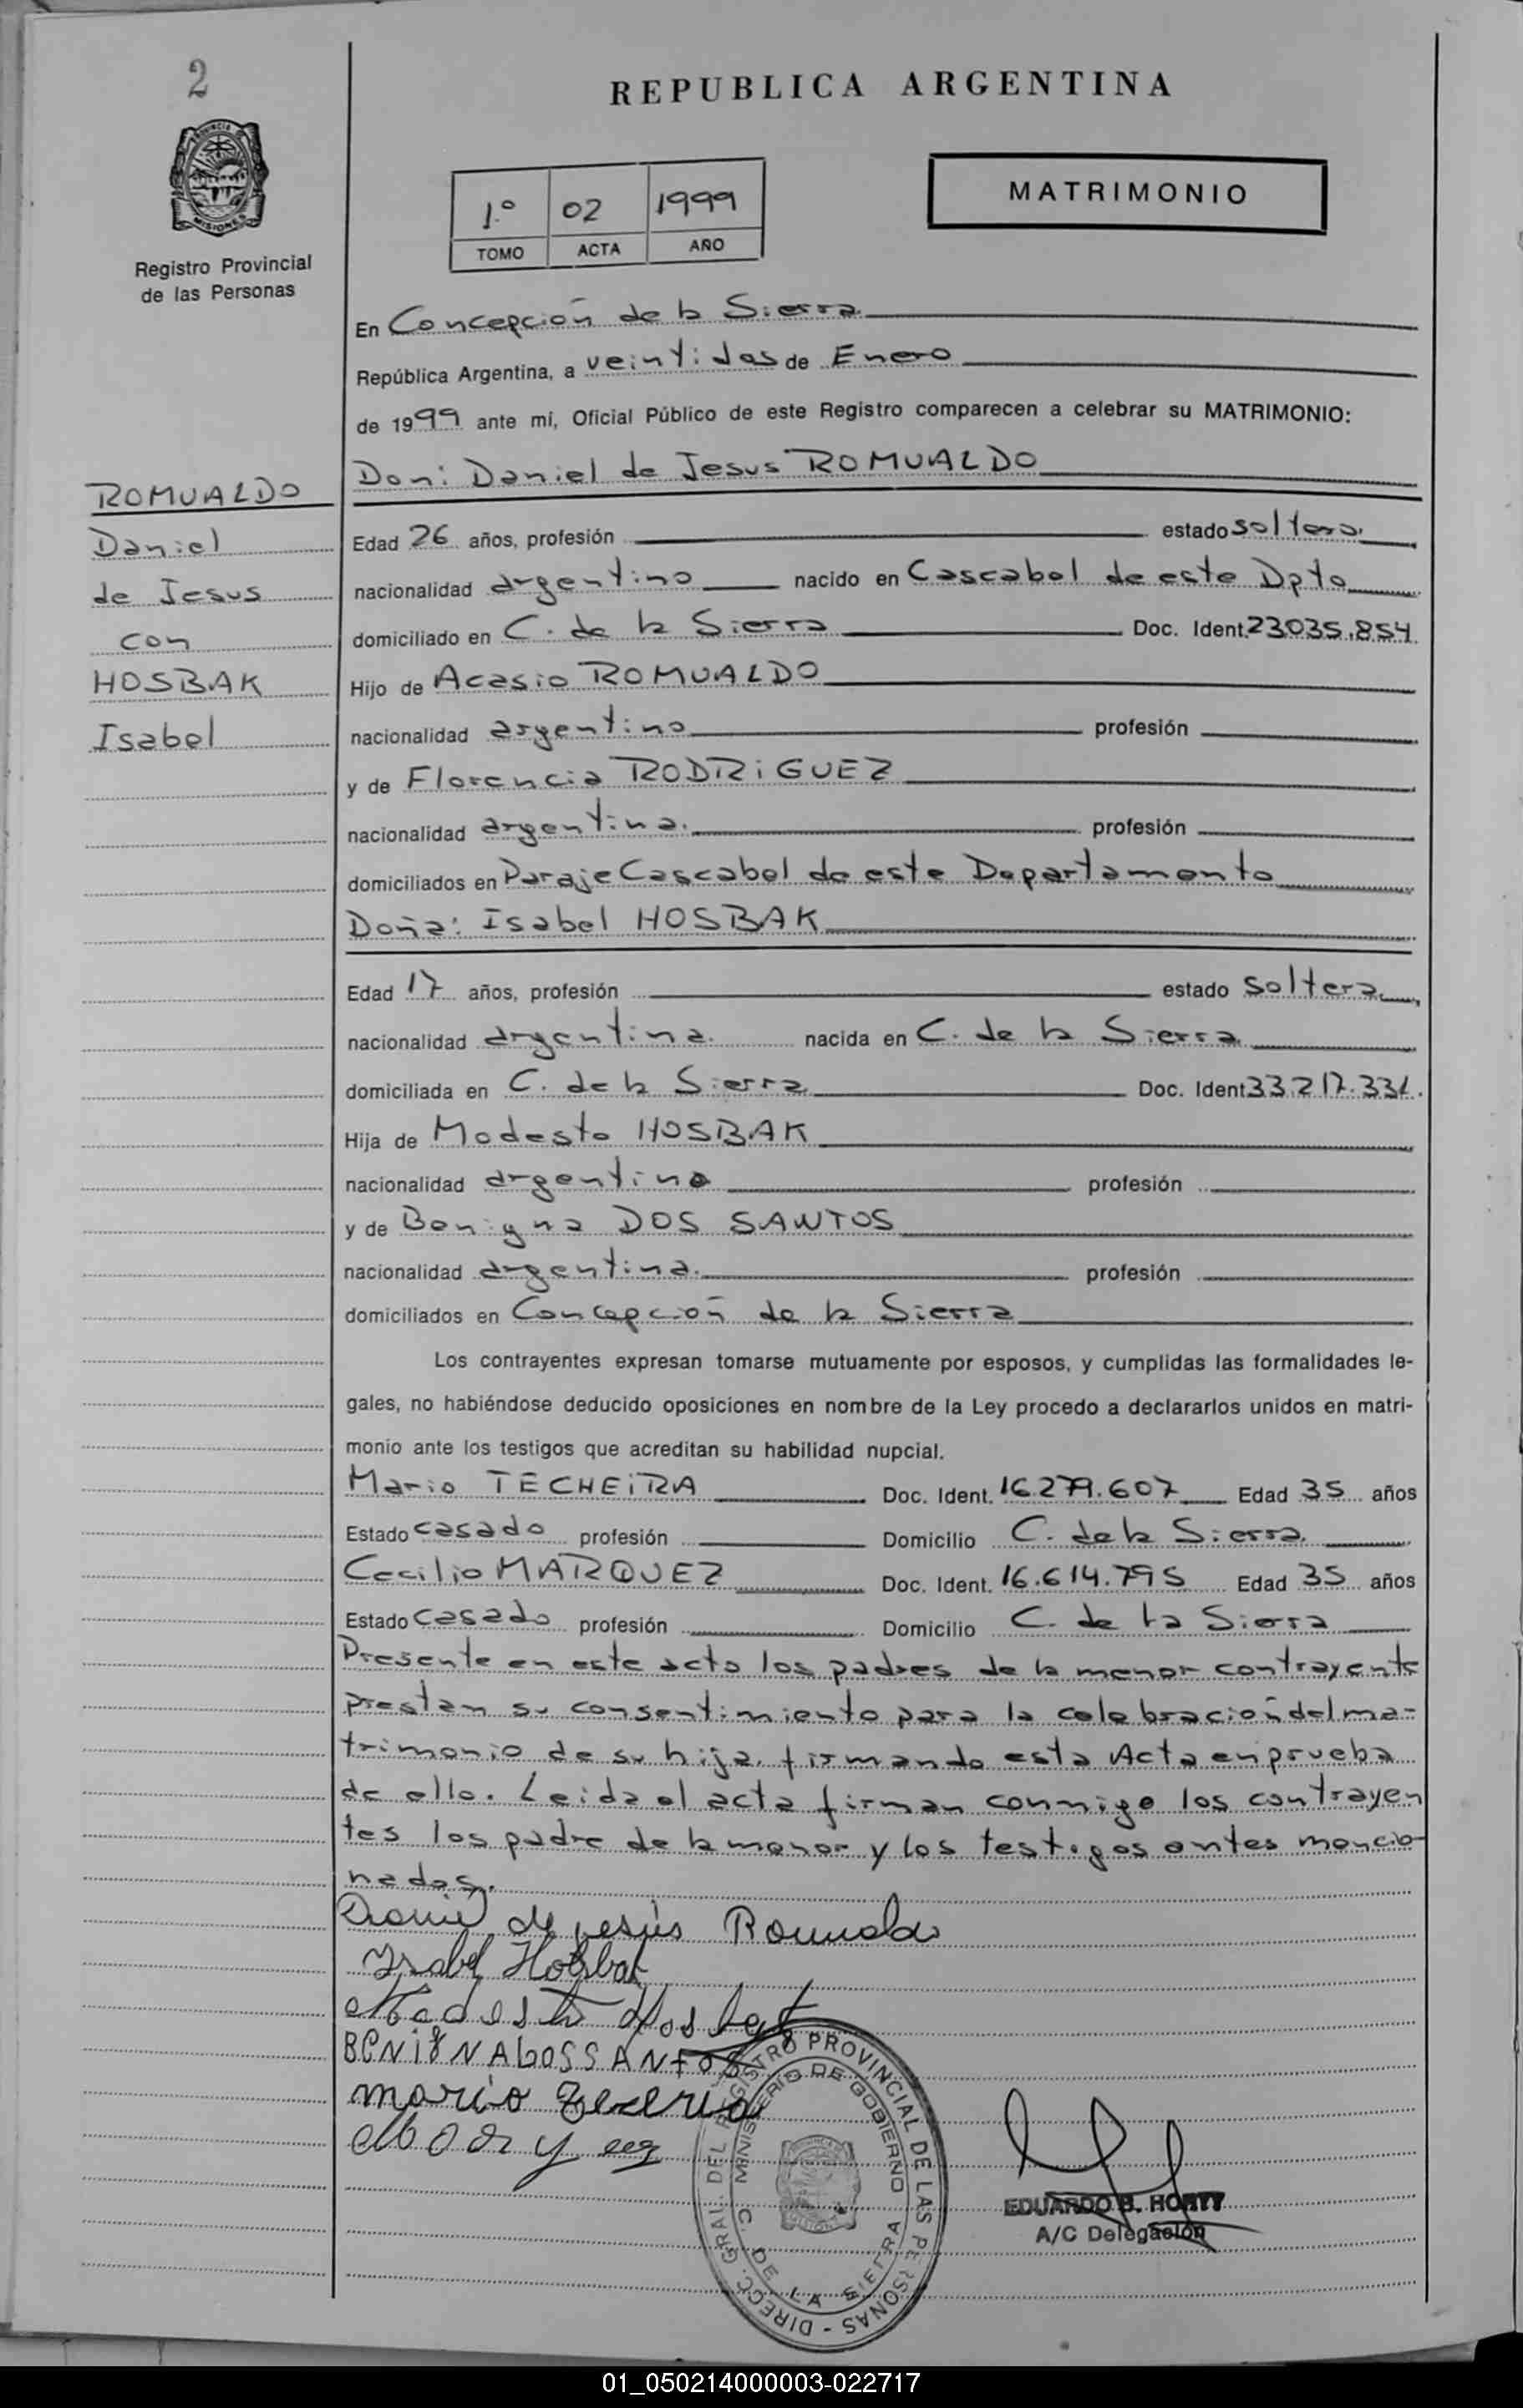 2
REPUBLICA ARGENTINA
PROVINCIA DE
MISIONES
Registro Provincial
de las Personas
1º 02 1999
TOMO ACTA AÑO
MATRIMONIO
ROMUALDO
Daniel
de Jesus
con
HOSBAK
Isabel
En Concepción de la Sierra
República Argentina, a veintidos de Enero
de 1999 ante mí, Oficial Público de este Registro comparecen a celebrar su MATRIMONIO:
Don: Daniel de Jesus ROMUALDO
Edad 26 años, profesión estado soltero.
nacionalidad argentino nacido en Cascabel de este Dpto
domiciliado en C. de la Sierra Doc. Ident. 23035.854
Hijo de Acasio ROMUALDO
nacionalidad argentino profesión
y de Florencia RODRiGUEZ
nacionalidad argentina. profesión
domiciliados en Paraje Cascabel de este Departamento
Doña: Isabel HOSBAK
Edad 17 años, profesión estado soltera.
nacionalidad argentina. nacida en C. de la Sierra
domiciliada en C. de la Sierra Doc. Ident 33.217.331.
Hija de Modesto HOSBAK
nacionalidad argentino profesión
y de Benigna DOS SANTOS
nacionalidad argentina. profesión
domiciliados en Concepción de la Sierra
Los contrayentes expresan tomarse mutuamente por esposos, y cumplidas las formalidades le-
gales, no habiéndose deducido oposiciones en nombre de la Ley procedo a declararlos unidos en matri-
monio ante los testigos que acreditan su habilidad nupcial.
Mario TECHEiRA Doc. Ident. 16.279.607 Edad 35 años
Estado casado profesión Domicilio C. de la Sierra.
Cecilio MARQUEZ Doc. Ident. 16.614.795 Edad 35 años
Estado casado profesión Domicilio C. de la Sierra
Presente en este acto los padres de la menor contrayente
prestan su consentimiento para la celebración del ma-
trimonio de su hija, firmando esta Acta en prueba
de ello. Leida el acta firman conmigo los contrayen
tes los padre de la menor y los testigos antes mencio-
nados.
Daniel de jesús Romualdo
Isabel Hosbak
Modesto Hosbak
BENIGNA DOSSANTOS
mario
DIRECC. GRAL. DEL REGISTRO PROVINCIAL DE LAS PERSONAS
MINISTERIO DE GOBIERNO
C. DE LA SIERRA
EDUARDO B. HORTT
A/C Delegación
01_050214000003-022717